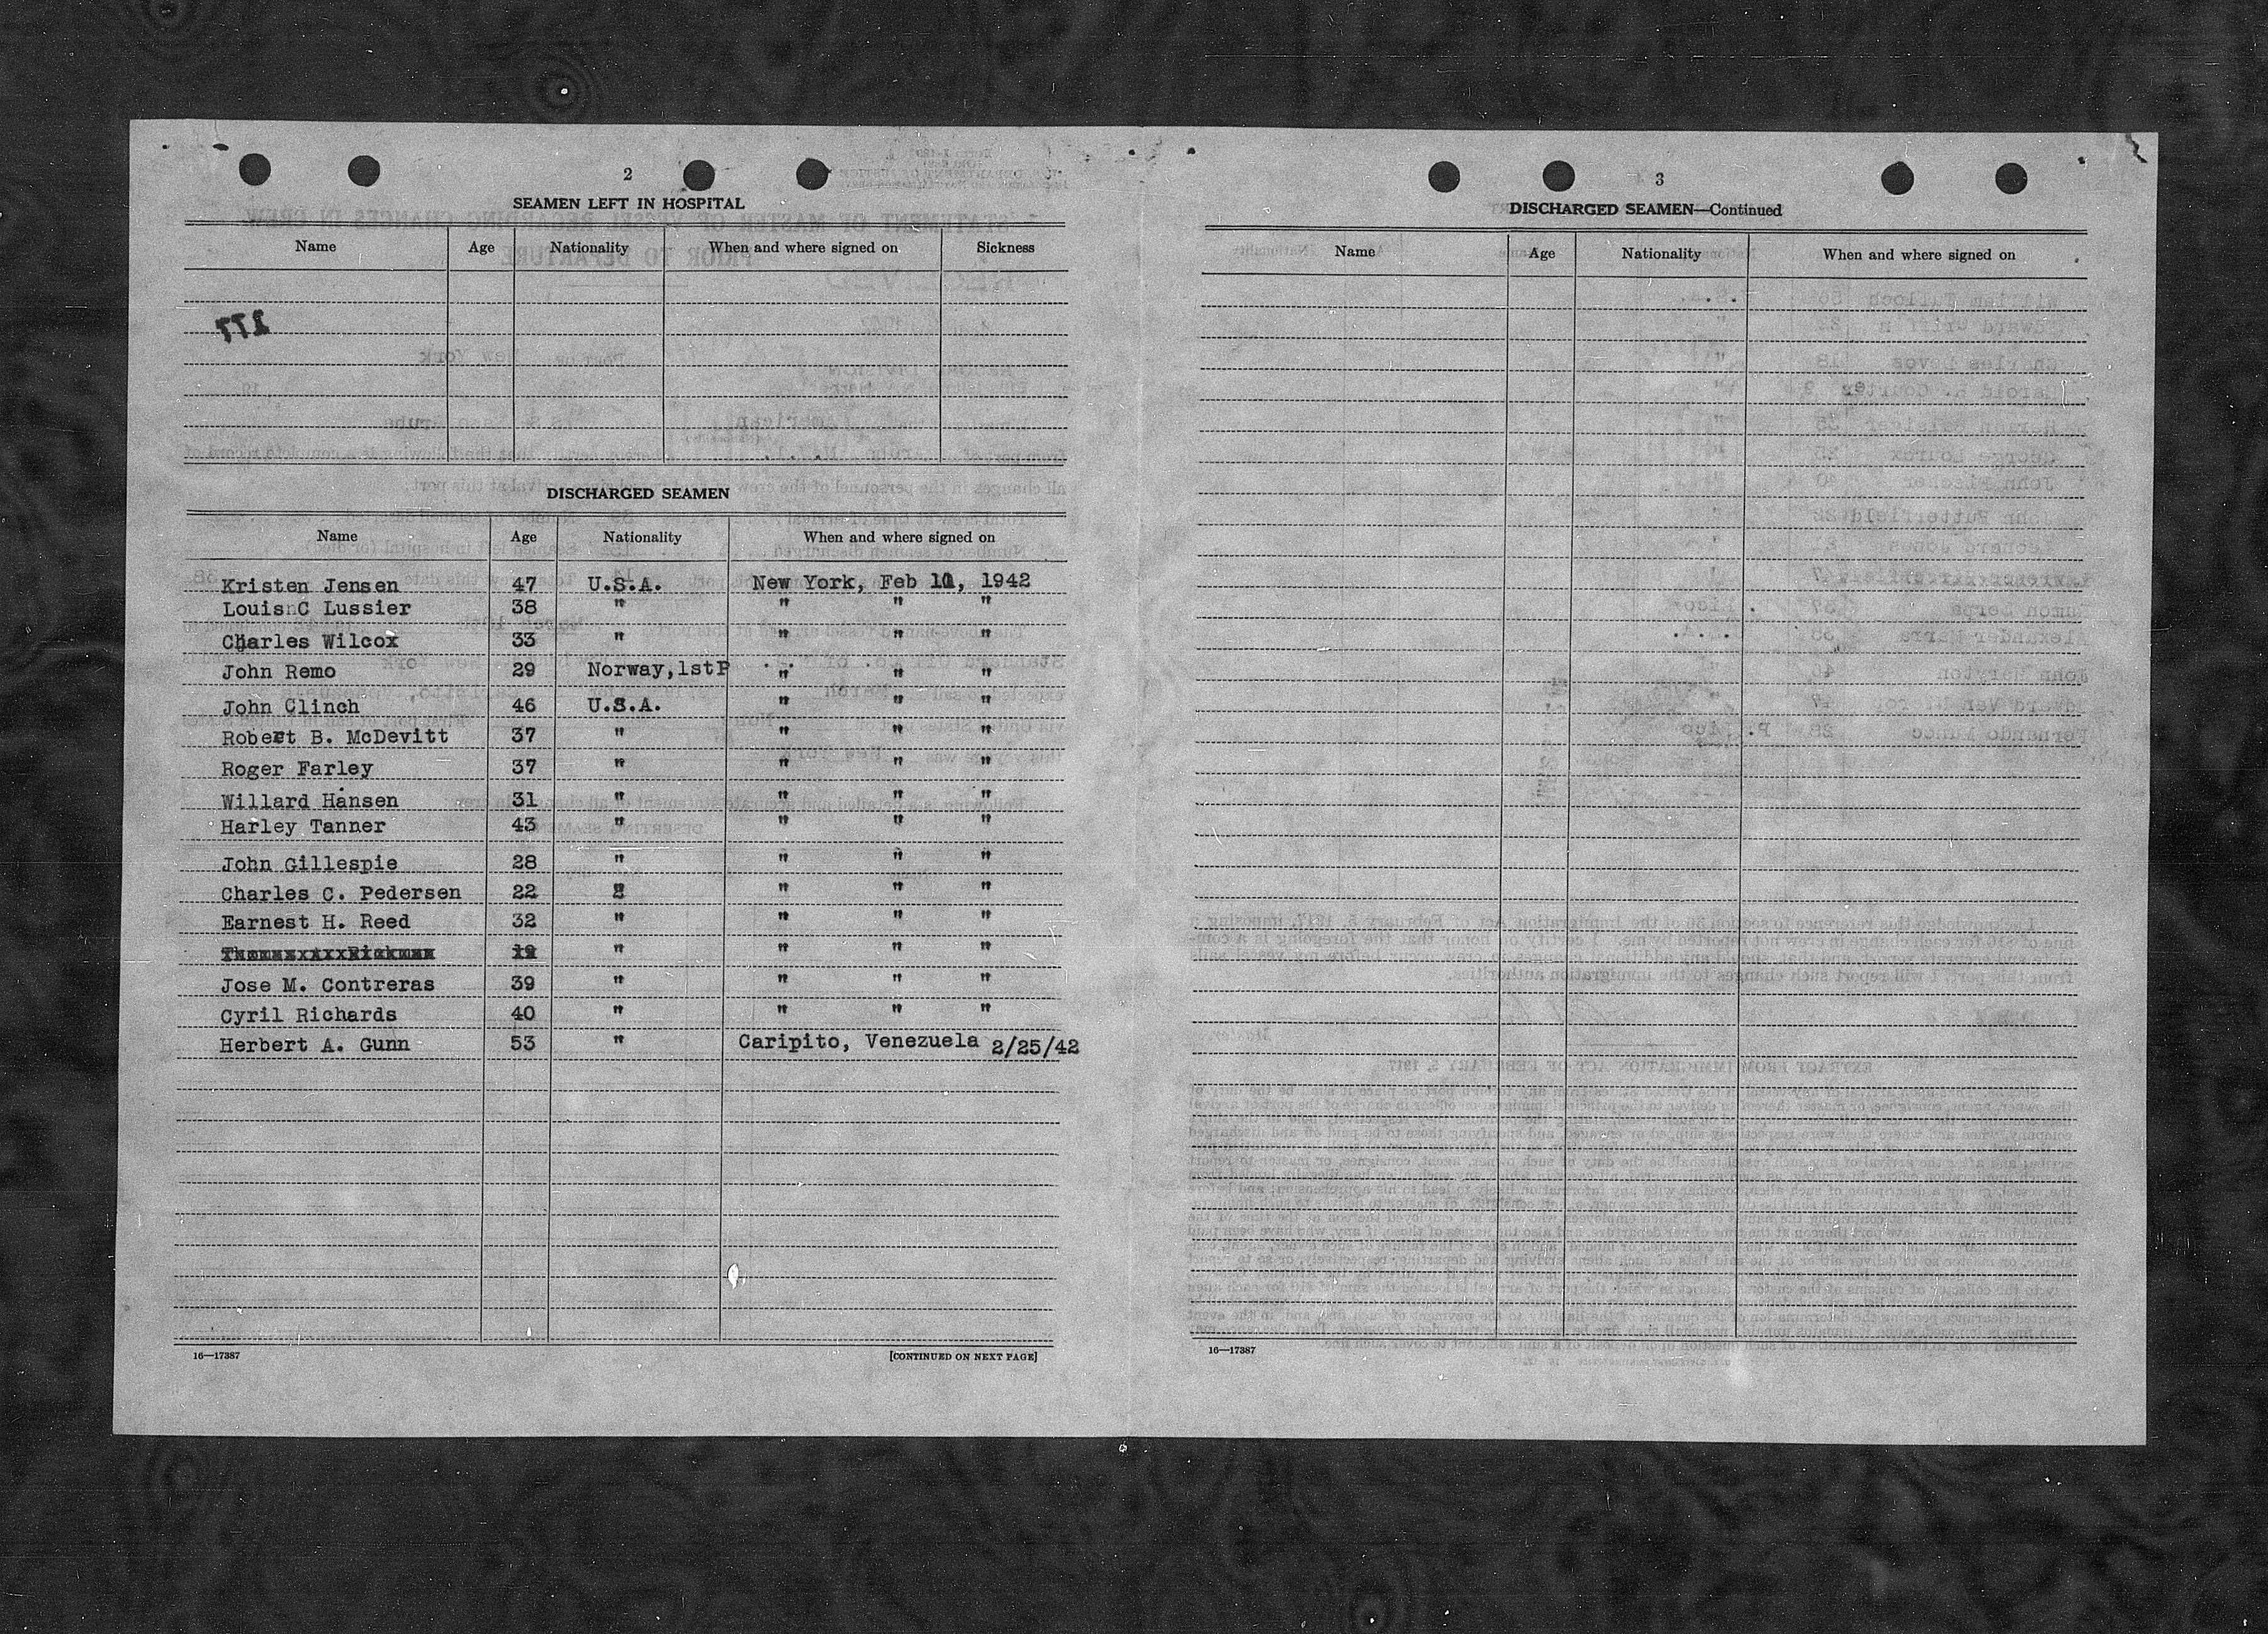 2
SEAMEN LEFT IN HOSPITAL
Name Age Nationality When and where signed on Sickness
177
DISCHARGED SEAMEN
Name Age Nationality When and where signed on
Kristen Jensen 47 U.S.A. New York, Feb 11, 1942
Louis C Lussier 38 " " " "
Charles Wilcox 33 " " " "
John Remo 29 Norway,1stP " " "
John Clinch 46 U.S.A. " " "
Robert B. McDevitt 37 " " " "
Roger Farley 37 " " " "
Willard Hansen 31 " " " "
Harley Tanner 43 " " " "
John Gillespie 28 " " " "
Charles C. Pedersen 22 " " " "
Earnest H. Reed 32 " " " "
19 " " " "
Jose M. Contreras 39 " " " "
Cyril Richards 40 " " " "
Herbert A. Gunn 53 " Caripito, Venezuela 2/25/42
16—17387 [CONTINUED ON NEXT PAGE]
3
DISCHARGED SEAMEN—Continued
Name Age Nationality When and where signed on
16—17387